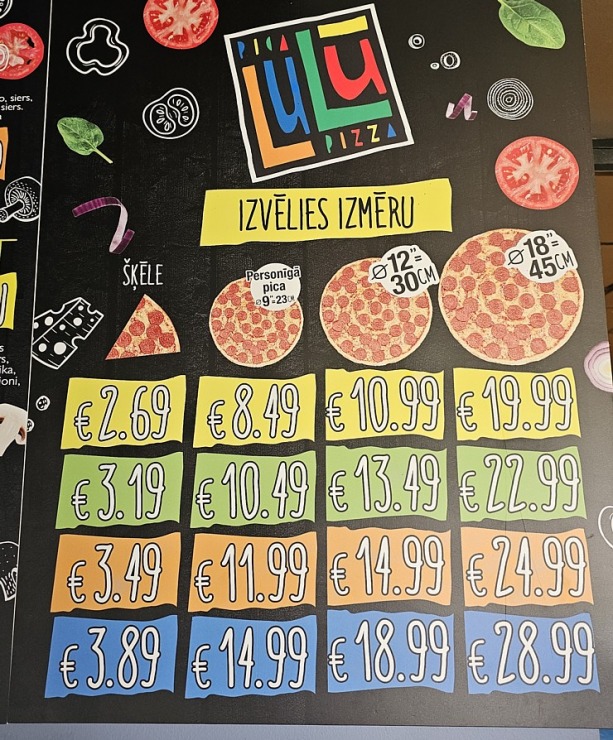 o, siers,
siers.
PICA
LULŪ
PIZZA
IZVĒLIES IZMĒRU
ŠĶĒLE
Personīgā
pica
⌀9"-23CM
⌀12"=
30CM
⌀18"=
45CM
ika,
ioni,
€2.69 €8.49 €10.99 €19.99
€3.19 €10.49 €13.49 €22.99
€3.49 €11.99 €14.99 €24.99
€3.89 €14.99 €18.99 €28.99